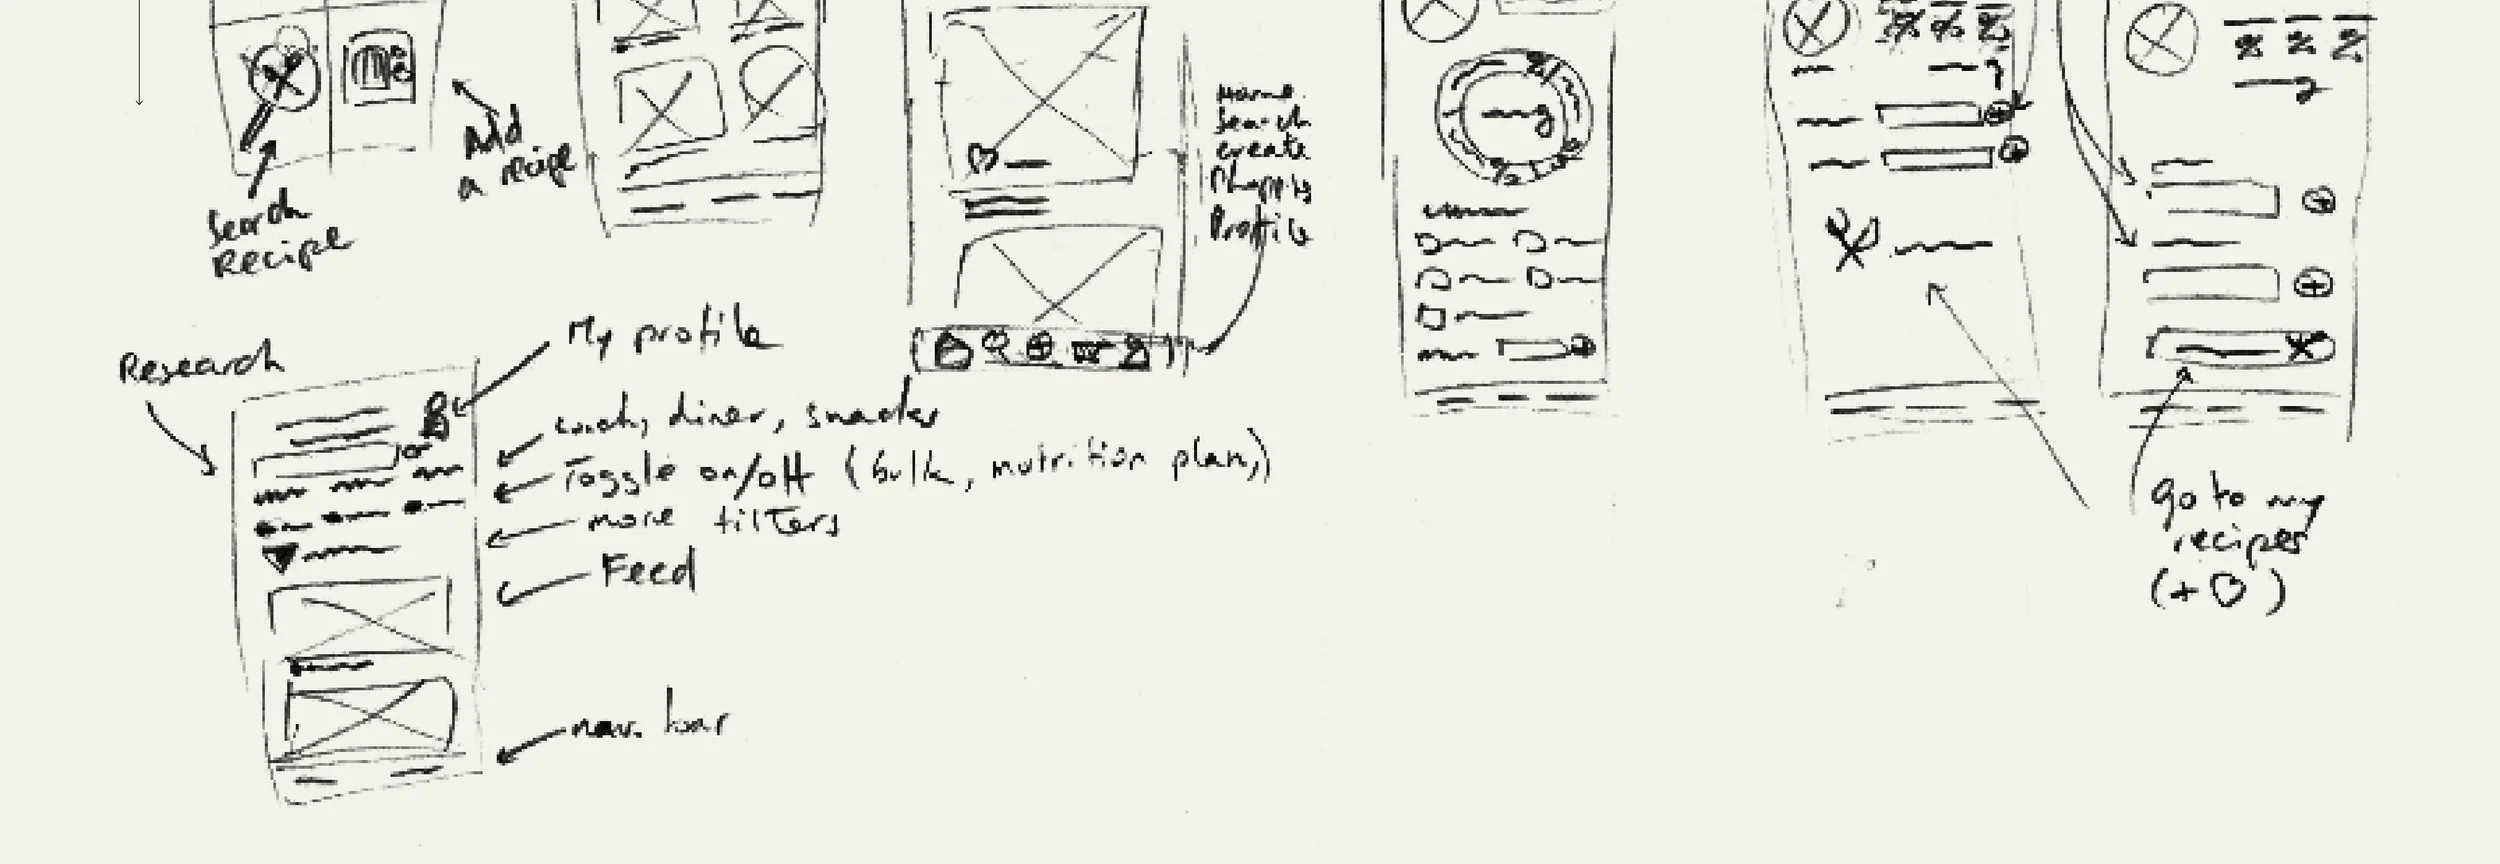 Add
a recipe
Search
Recipe
Home
Search
create
Shopping
Profile
Research
My profile
Lunch, diner, snacks
Toggle on/off (bulk, nutrition plan,)
more filters
Feed
nav. bar
go to my
recipes
(+ ♡)